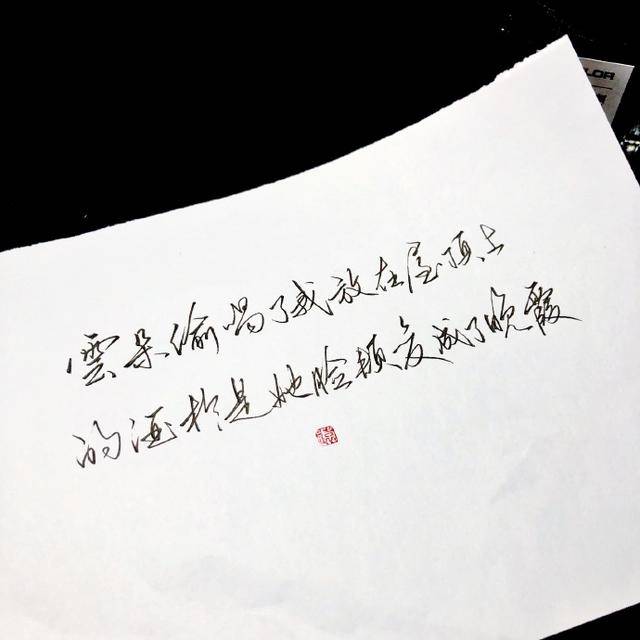 雲朵偷喝了我放在屋顶上
的酒于是她脸颊变成了晚霞
LOR